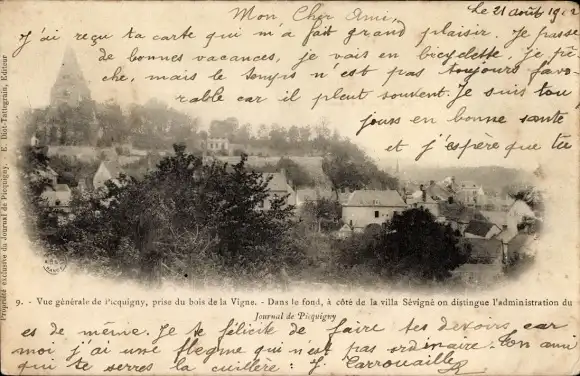 Le 21 août 1902
Mon Cher Ami,
J'ai reçu ta carte qui m'a fait grand plaisir. Je passe
de bonnes vacances, je vais en bicyclette, je pê-
che, mais le temps n'est pas toujours favo-
rable car il pleut souvent. Je suis tou
jours en bonne santé
et j'espère que tu
9. - Vue générale de Picquigny, prise du bois de la Vigne. - Dans le fond, à côté de la villa Sévigné on distingue l'administration du
Journal de Picquigny
es de même. Je te félicite de faire tes devoirs car
moi j'ai une flegme qui n'est pas ordinaire. Ton ami
qui te serres la cuillère : J. Carrouaille
Propriété exclusive du Journal de Picquigny. - E. Diot-Tattegrain, Editeur